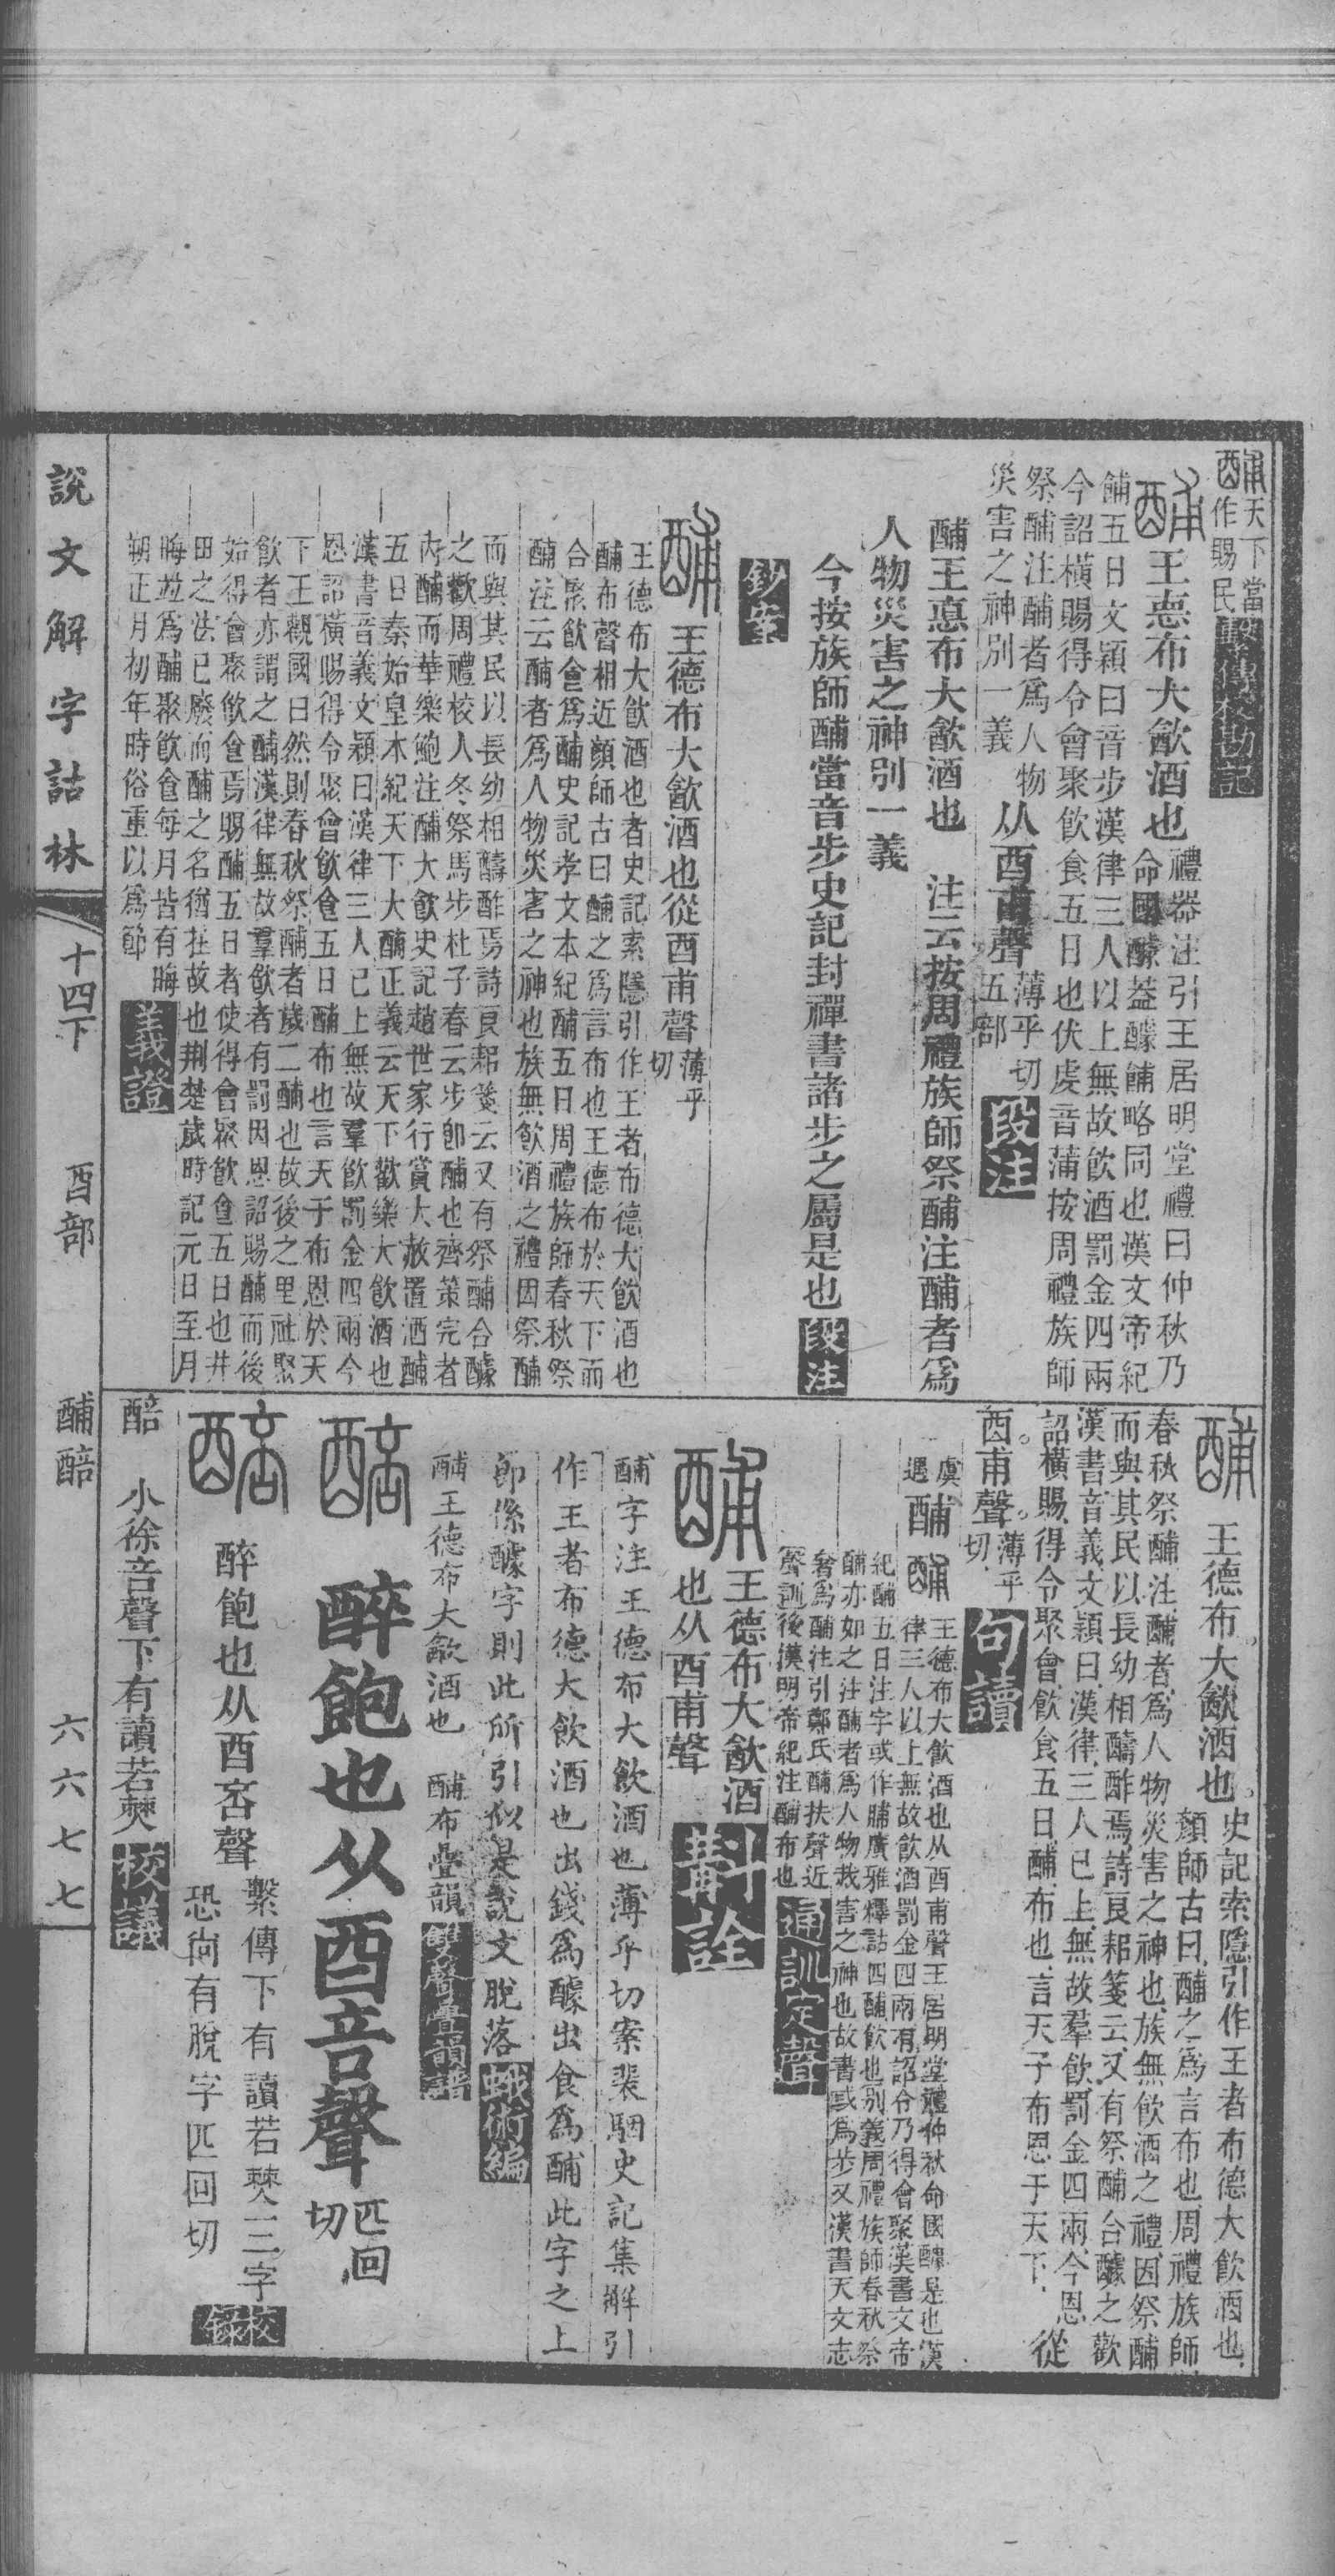 酺天下當
作賜民繫傳校勘記
酺王悳布大㱃酒也禮器注引王居明堂禮曰仲秋乃
命國醵葢醵餔略同也漢文帝紀
餔五日文穎曰音步漢律三人以上無故飲酒罰金四兩
今詔橫賜得令會聚飲食五日也伏虔音蒲按周禮族師
祭酺注酺者爲人物
災害之神別一義从酉甫聲薄乎切
五部段注
酺王悳布大㱃酒也 注云按周禮族師祭酺注酺者爲
人物災害之神別一義
今按族師酺當音步史記封禪書諸步之屬是也段注
鈔案
酺王德布大㱃酒也從酉甫聲薄乎
切
王德布大飲酒也者史記索隱引作王者布德大飲酒也
酺布聲相近顏師古曰酺之爲言布也王德布於天下而
合聚飲食爲酺史記孝文本紀酺五日周禮族師春秋祭
酺注云酺者爲人物災害之神也族無飲酒之禮因祭酺
而與其民以長幼相醻酢焉詩良耜箋云又有祭酺合醵
之歡周禮校人冬祭馬步杜子春云步卽酺也齊策完者
內酺而華樂鮑注酺大飲史記趙世家行賞大赦置酒酺
五日秦始皇本紀天下大酺正義云天下歡樂大飲酒也
漢書音義文穎曰漢律三人已上無故羣飲罰金四兩今
恩詔橫賜得令聚會飲食五日酺布也言天子布恩於天
下王觀國曰然則春秋祭酺者歲二酺也故後之里社聚
飲者亦謂之酺漢律無故羣飲者有罰因恩詔賜酺而後
始得會聚飲食焉賜酺五日者使得會聚飲食五日也井
田之法已廢而酺之名猶在故也荆楚歲時記元日至月
晦竝爲酺聚飲食每月皆有晦
朔正月初年時俗重以爲節義證
酺王德布大㱃酒也史記索隱引作王者布德大飲酒也
顏師古曰酺之爲言布也周禮族師
春秋祭酺注酺者爲人物災害之神也族無飲酒之禮因祭酺
而與其民以長幼相醻酢焉詩良耜箋云又有祭酺合醵之歡
漢書音義文穎曰漢律三人已上無故羣飲罰金四兩今恩
詔橫賜得令聚會飲食五日酺布也言天子布恩于天下從
酉甫聲薄乎
切句讀
虞
遇酺酺王德布大飲酒也从酉甫聲王居明堂禮仲秋命國醵是也漢
律三人以上無故飲酒罰金四兩有詔令乃得會聚漢書文帝
紀酺五日注字或作脯廣雅釋詁四酺飲也別義周禮族師春秋祭
酺亦如之注酺者爲人物烖害之神也故書或爲步又漢書天文志
奢爲酺注引鄭氏酺扶聲近
聲訓後漢明帝紀注酺布也通訓定聲
酺王德布大㱃酒
也从酉甫聲斠詮
酺字注王德布大飲酒也薄乎切案裴駰史記集解引
作王者布德大飲酒也出錢爲醵出食爲酺此字之上
卽係醵字則此所引似是說文脫落蛾術編
酺王德布大㱃酒也 酺布疊韻雙聲疊韻譜
醅醉飽也从酉咅聲匹回
切
醅醉飽也从酉咅聲繫傳下有讀若僰三字
恐尙有脫字匹回切校錄
醅 小徐音聲下有讀若僰校議
說文解字詁林 十四下 酉部 酺醅 六六七七